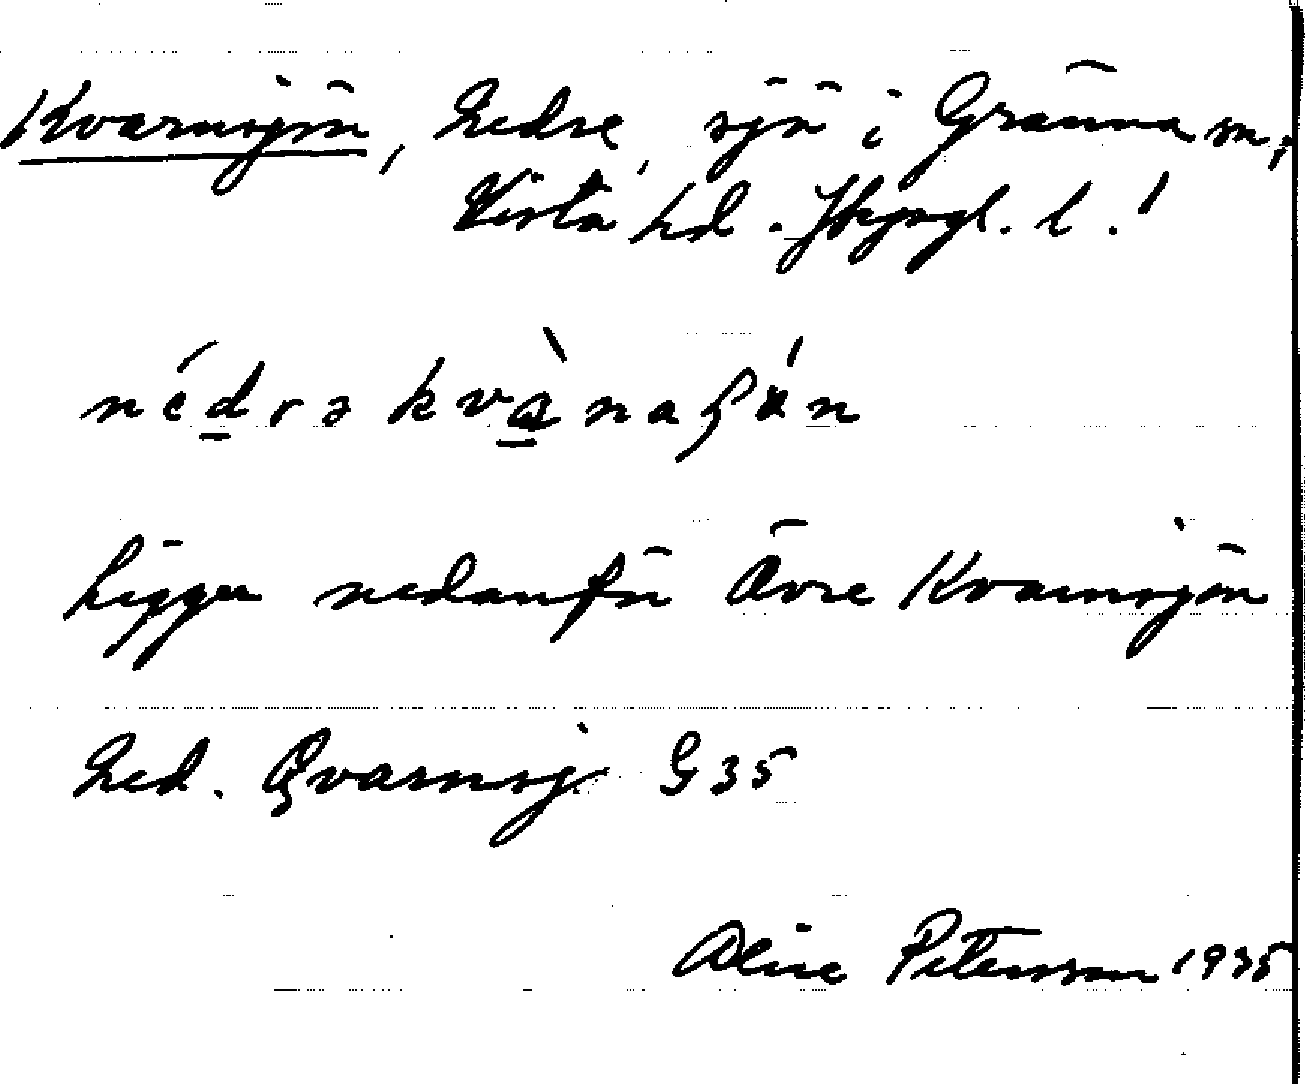 Kvarnsjön, Nedre, sjö i Gränna sn,
Vista hd. Jkpgs l.
nédrə kvànaʂǿn
Ligger nedanför Övre Kvarnsjön
Ned. Qvarnsj. G 35
Alice Petersson 1935